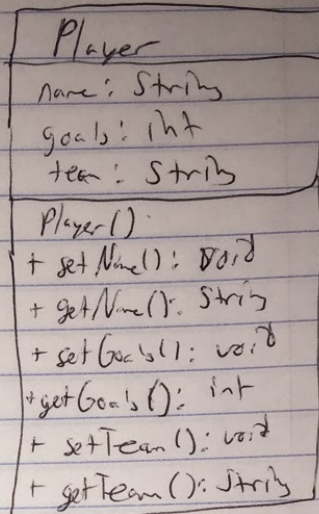 Player
name: String
goals: int
team: String
Player()
+ setName(): void
+ getName(): String
+ setGoals(): void
+ getGoals(): int
+ setTeam(): void
+ getTeam(): String